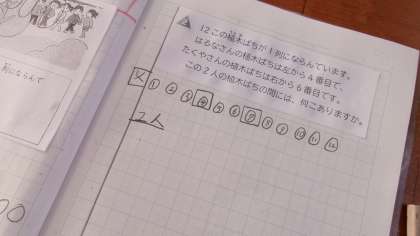 12この植木ばちが1列にならんでいます。
はるなさんの植木ばちは左から4番目で、
たくやさんの植木ばちは右から6番目です。
この2人の植木ばちの間には、何こありますか。
図
① ② ③ ④ ⑤ ⑥ ⑦ ⑧ ⑨ ⑩ ⑪ ⑫
2人
列にならんで